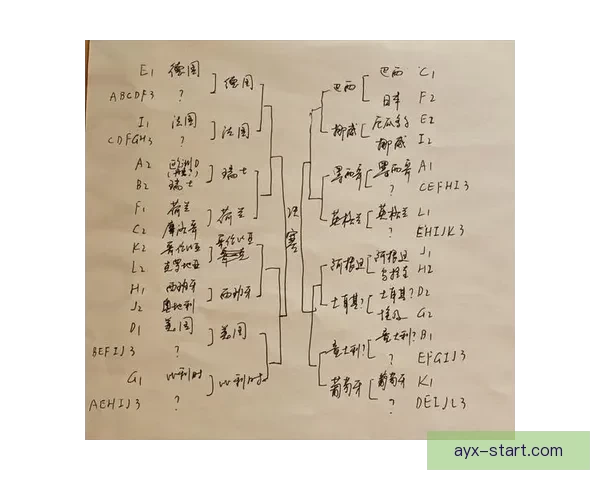 E1 德国
ABCDF3 ?
德国
I1 法国
CDFGH3 ?
法国
A2 欧洲D
B2 瑞士
瑞士
F1 荷兰
C2 摩洛哥
荷兰
K2 哥伦比亚
L2 克罗地亚
哥伦比亚
H1 西班牙
J2 奥地利
西班牙
D1 美国
BEFIJ3 ?
美国
G1 比利时
AEHIJ3 ?
比利时
决赛
巴西
巴西 C1
日本 F2
挪威
厄瓜多尔 E2
挪威 I2
墨西哥
墨西哥 A1
? CEFHI3
英格兰
英格兰 L1
? EHIJK3
阿根廷
阿根廷 J1
乌拉圭 H2
土耳其?
土耳其? D2
埃及 G2
意大利?
意大利? B1
? EFGIJ3
葡萄牙
葡萄牙 K1
? DEIJL3
ayx-start.com